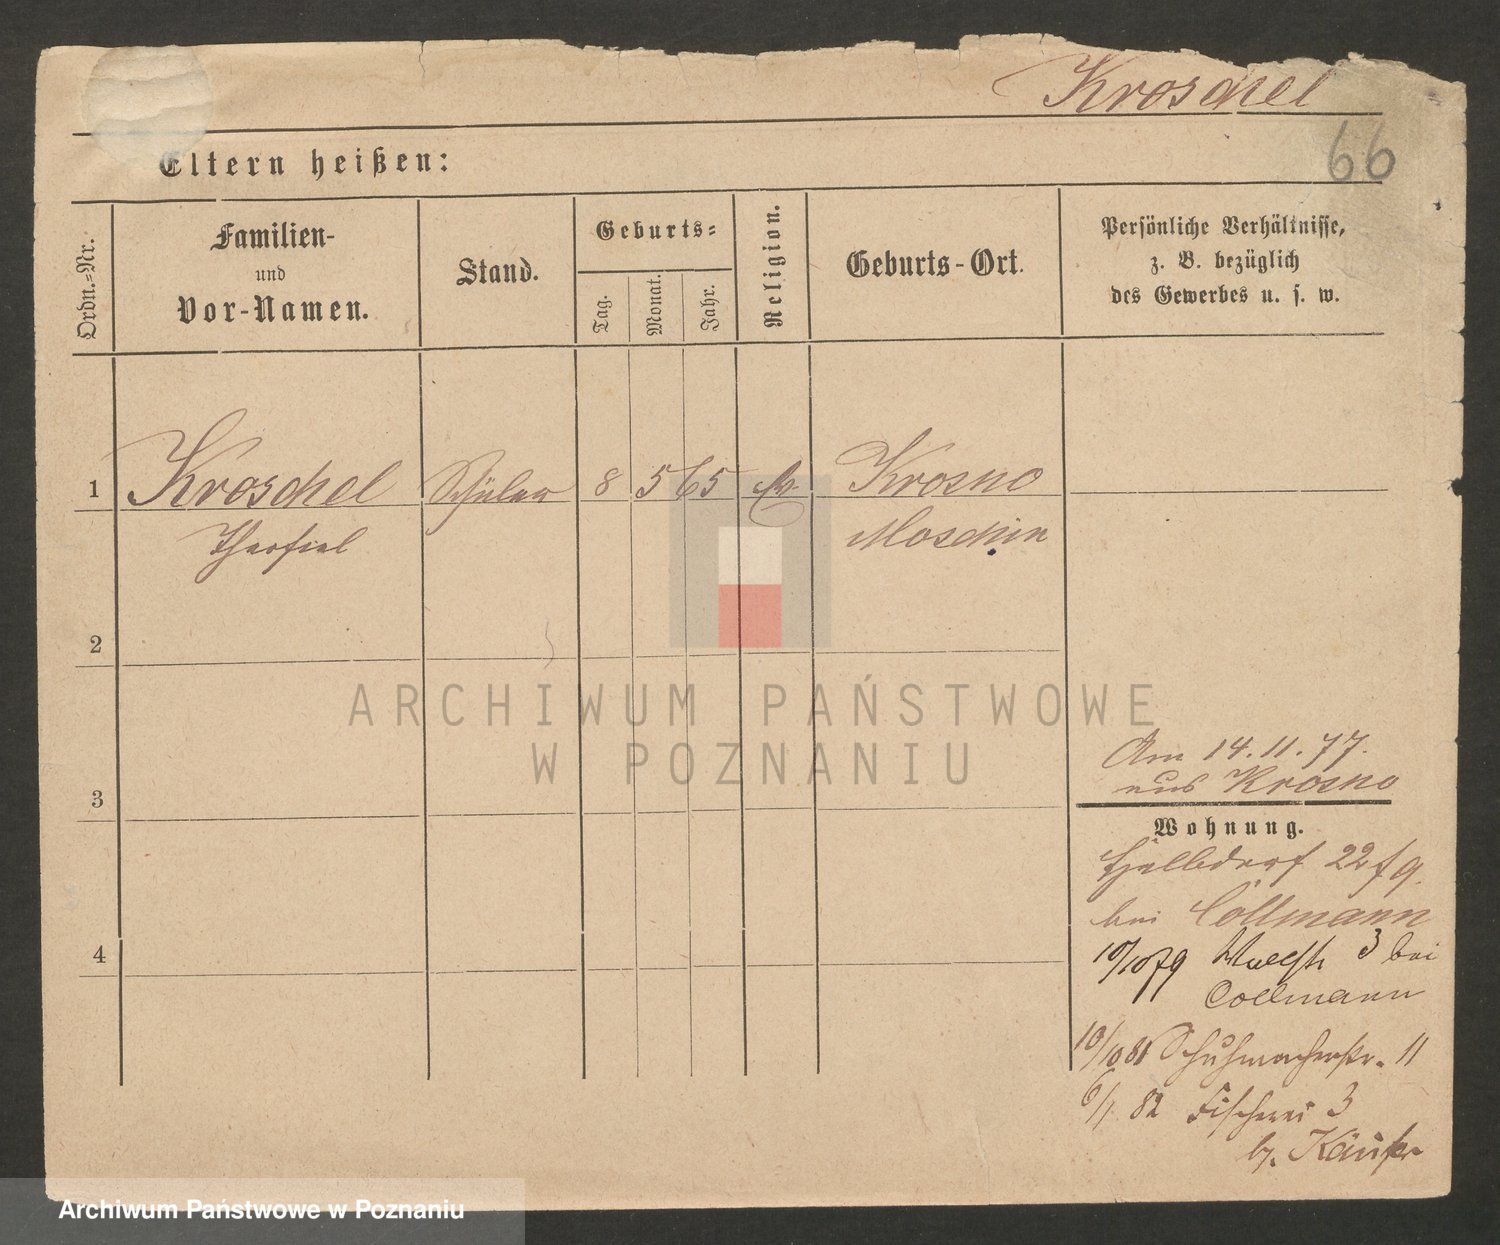 Kroschel
66
Eltern heißen:
Ordn.-Nr.
Familien-
und
Vor-Namen.
Stand.
Geburts-
Tag.
Monat.
Jahr.
Religion.
Geburts-Ort.
Persönliche Verhältnisse,
z. B. bezüglich
des Gewerbes u. s. w.
1 Kroschel Schüler 8 5 65 ev. Krosno
Moschin
2
3
4
Am 14.11.77.
aus Krosno
Wohnung.
Halbdorf 22
bei Collmann
10/10 79 Wallstr 3 bei
Collmann
10/10 81 Schuhmacherstr. 11
6/1. 82 Fischerei 3
b.
ARCHIWUM PAŃSTWOWE
W POZNANIU
Archiwum Państwowe w Poznaniu